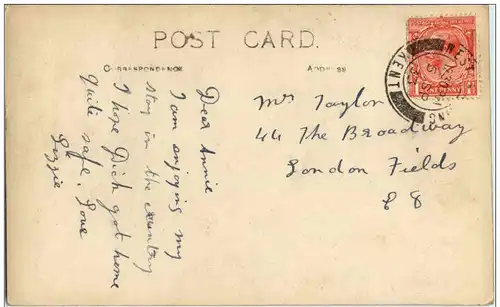 POST CARD.
CORRESPONDENCE
ADDRESS
Dear Annie
I am enjoying my
stay in the country
I hope Dich got home
quite safe. Love
Lizzie
Mrs Taylor
44 The Broadway
London Fields
E 8
ONE PENNY
KENT